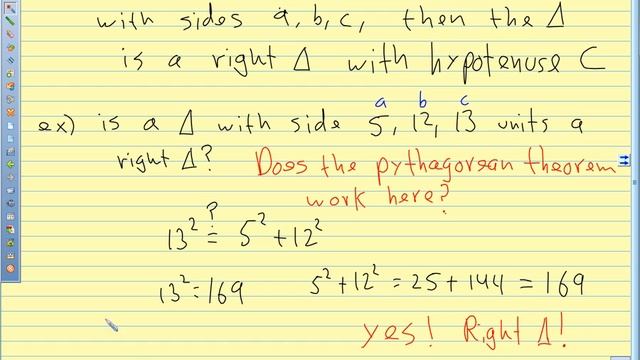 with sides a, b, c, then the Δ
is a right Δ with hypotenuse C
a b c
ex) is a Δ with side 5, 12, 13 units a
right Δ? Does the pythagorean theorem
work here?
13² ≟ 5² + 12²
13² = 169 5² + 12² = 25 + 144 = 169
yes! Right Δ!